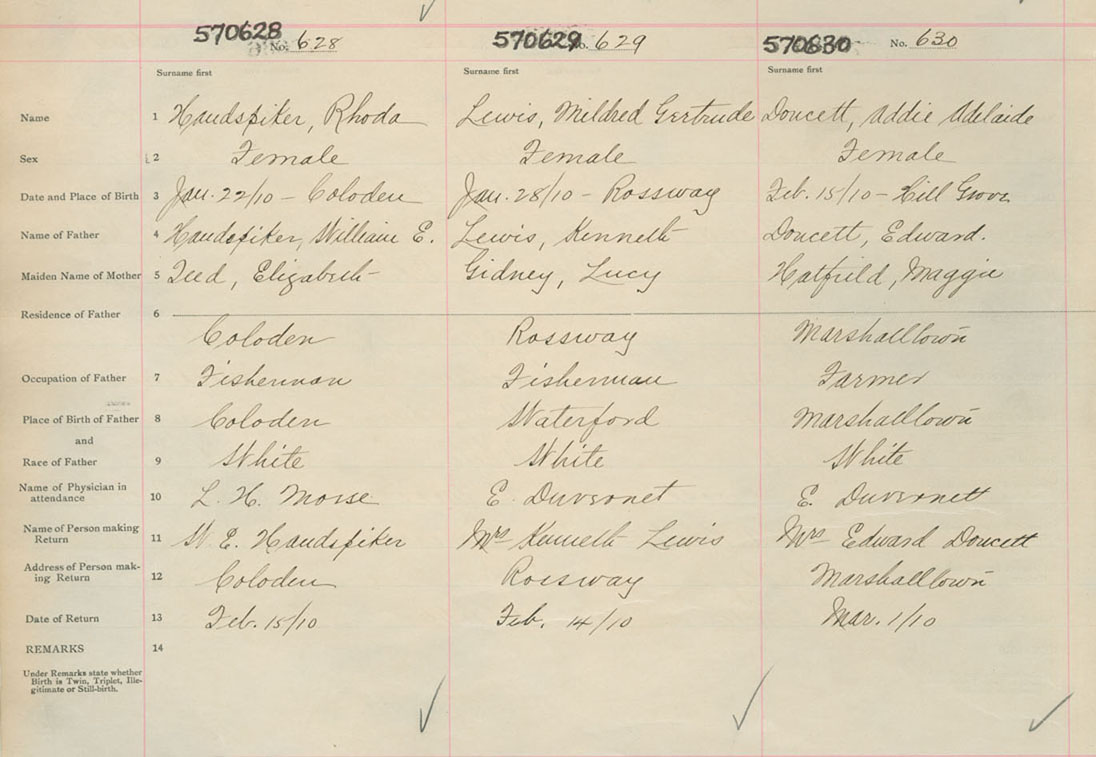 570628 No. 628 570629 No. 629 570630 No. 630
Surname first Surname first Surname first
Name 1 Handspiker, Rhoda Lewis, Mildred Gertrude Doucett, Addie Adelaide
Sex 2 Female Female Female
Date and Place of Birth 3 Jan. 22/10 – Coloden Jan. 28/10 – Rossway Feb. 15/10 – Hill Grove
Name of Father 4 Handspiker, William E. Lewis, Kenneth Doucett, Edward.
Maiden Name of Mother 5 Teed, Elizabeth Gidney, Lucy Hatfield, Maggie
Residence of Father 6
Coloden Rossway Marshalltown
Occupation of Father 7 Fisherman Fisherman Farmer
Place of Birth of Father 8 Coloden Waterford Marshalltown
and
Race of Father 9 White White White
Name of Physician in
attendance 10 L. H. Morse E. Duvernet E. Duvernett
Name of Person making
Return 11 W. E. Handspiker Mrs Kenneth Lewis Mrs Edward Doucett
Address of Person mak-
ing Return 12 Coloden Rossway Marshalltown
Date of Return 13 Feb. 15/10 Feb. 14/10 Mar. 1/10
REMARKS 14
Under Remarks state whether
Birth is Twin, Triplet, Ille-
gitimate or Still-birth.